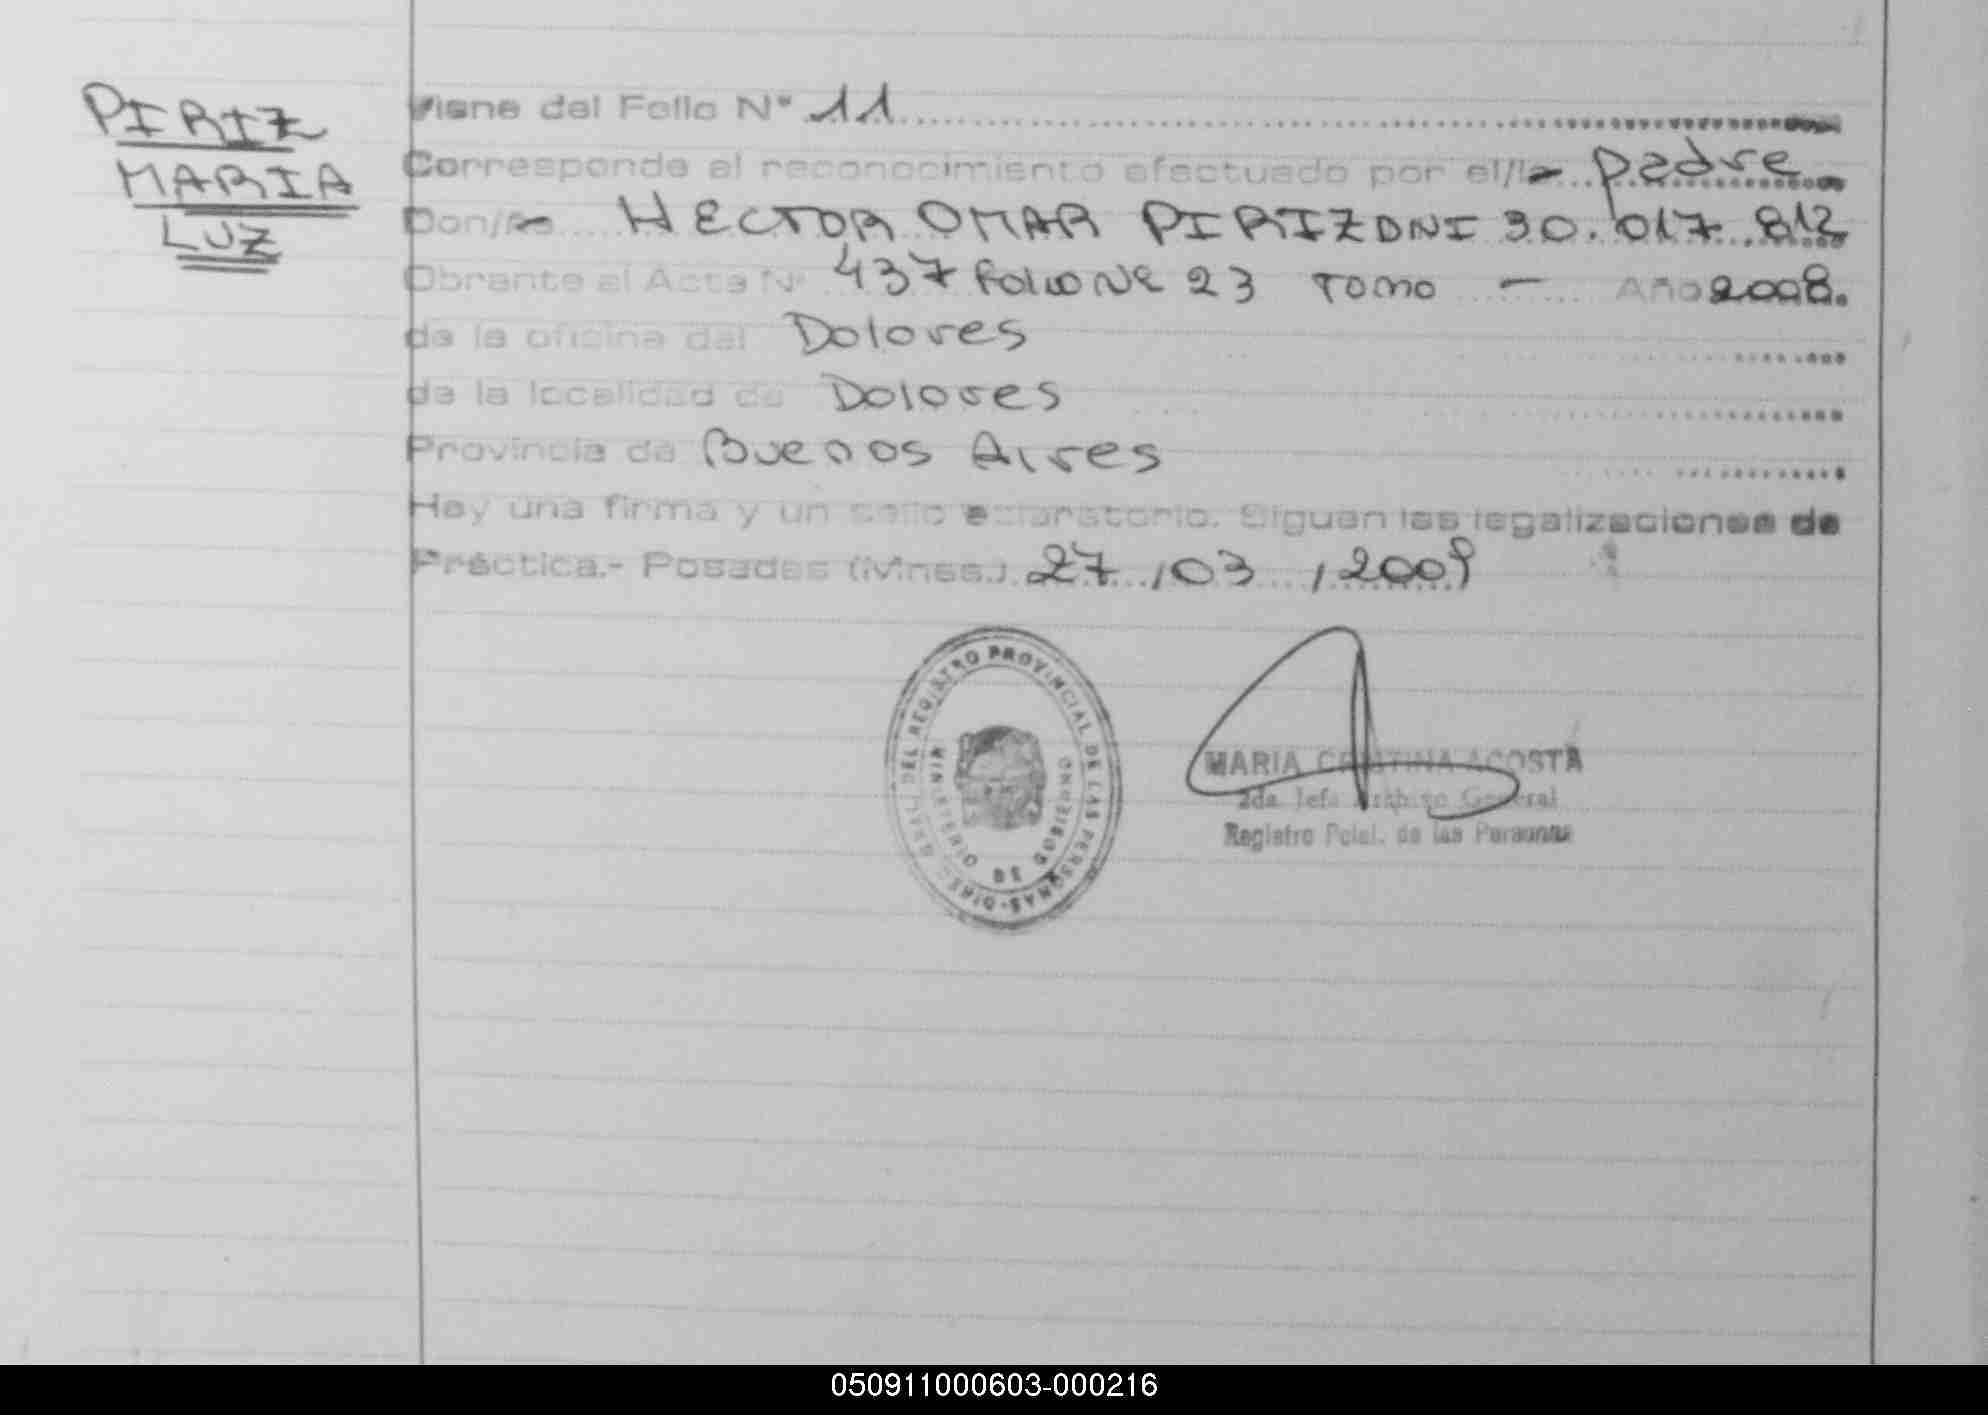 PIRIZ
MARIA
LUZ
Viene del Folio N° 11
Corresponde al reconocimiento efectuado por el/la padre
Don/ña HECTOR OMAR PIRIZ DNI 30.017.812
Obrante al Acta N° 437 Folio Nº 23 Tomo - Año 2008.
de la oficina del Dolores
de la localidad de Dolores
Provincia de Buenos Aires
Hay una firma y un sello aclaratorio. Siguen las legalizaciones de
Práctica.- Posadas (Mnes.) 27/03/2009
REGISTRO PROVINCIAL DE LAS PERSONAS
MINISTERIO DE GOBIERNO
MARIA CRISTINA ACOSTA
2da. Jefa Archivo General
Registro Pcial. de las Personas
050911000603-000216